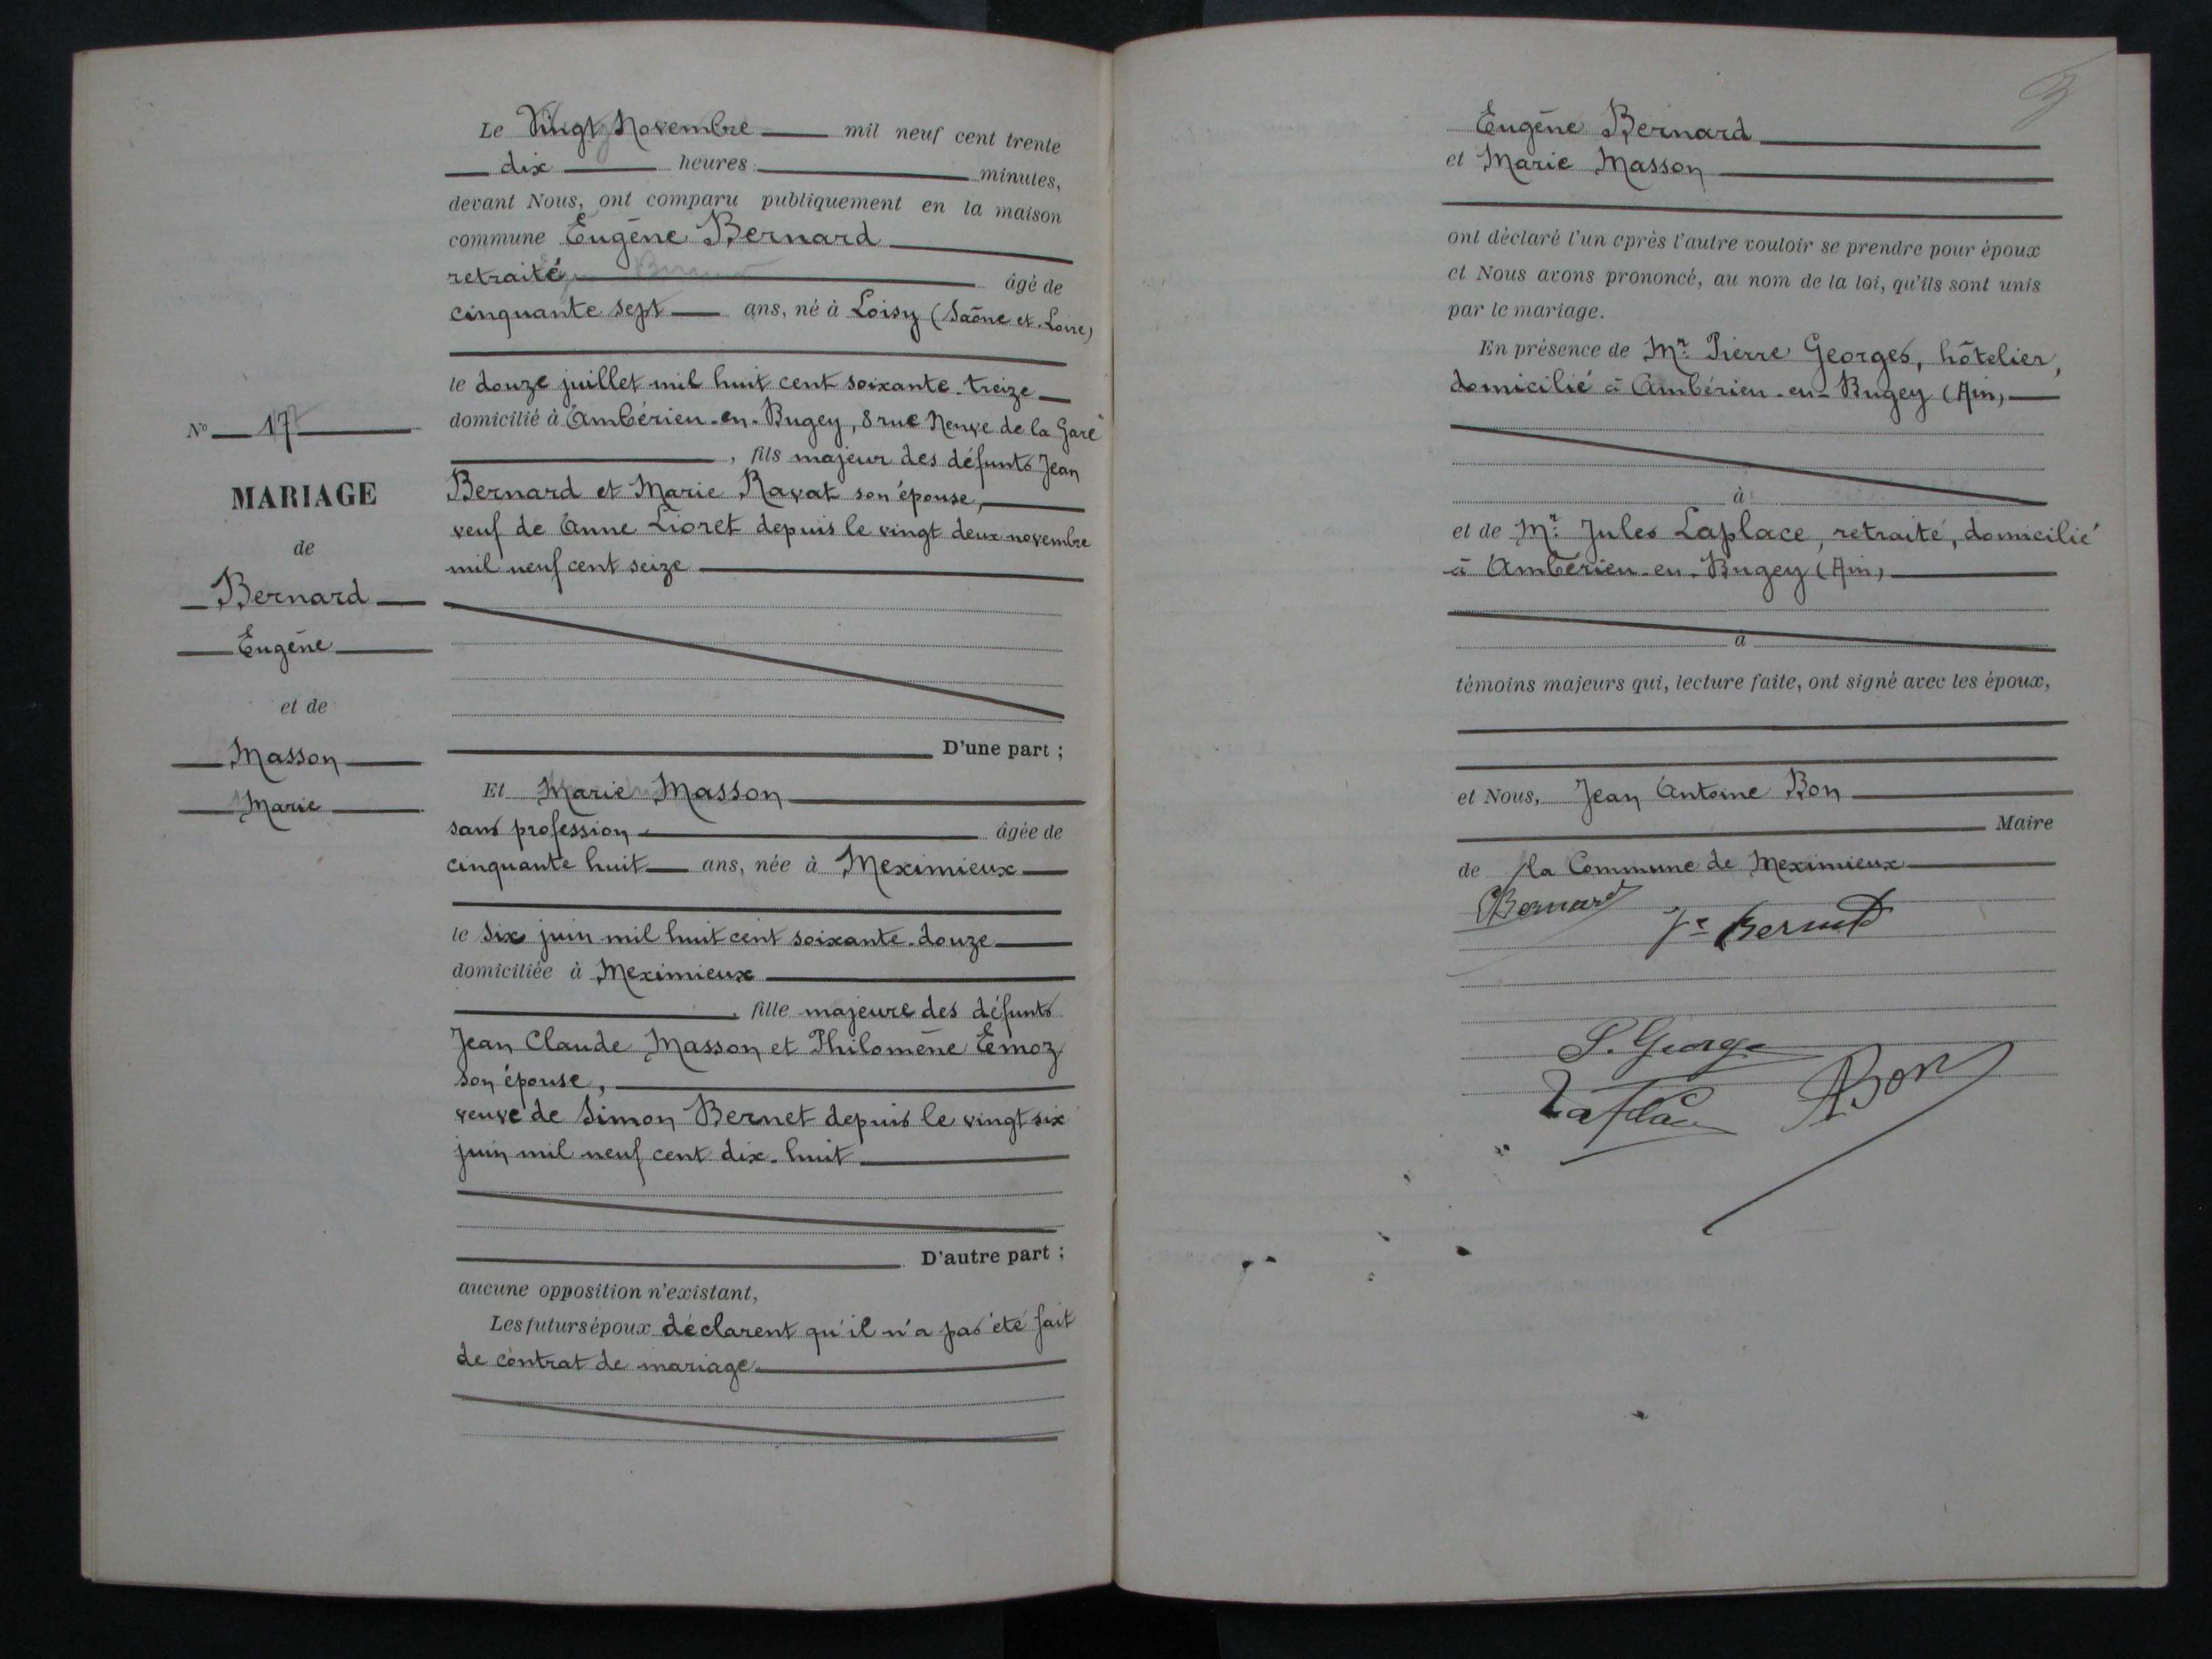 N° 17
MARIAGE
de
Bernard
Eugène
et de
Masson
Marie
Le Vingt Novembre mil neuf cent trente
dix heures minutes,
devant Nous, ont comparu publiquement en la maison
commune Eugène Bernard
retraité âgé de
cinquante sept ans, né à Loisy (Saône et Loire)
le douze juillet mil huit cent soixante-treize
domicilié à Ambérieu-en-Bugey, 8 rue Neuve de la Gare
, fils majeur des défunts Jean
Bernard et Marie Ravat son épouse,
veuf de Anne Lioret depuis le vingt deux novembre
mil neuf cent seize
D'une part ;
Et Marie Masson
sans profession âgée de
cinquante huit ans, née à Meximieux
le six juin mil huit cent soixante-douze
domiciliée à Meximieux
, fille majeure des défunts
Jean Claude Masson et Philomène Emoz
son épouse,
veuve de Simon Bernet depuis le vingt six
juin mil neuf cent dix-huit
D'autre part ;
aucune opposition n'existant,
Les futurs époux déclarent qu'il n'a pas été fait
de contrat de mariage.
Eugène Bernard
et Marie Masson
ont déclaré l'un après l'autre vouloir se prendre pour époux
et Nous avons prononcé, au nom de la loi, qu'ils sont unis
par le mariage.
En présence de Mr. Pierre Georges, hôtelier,
domicilié à Ambérieu-en-Bugey (Ain)
à
et de Mr. Jules Laplace, retraité, domicilié
à Ambérieu-en-Bugey (Ain)
à
témoins majeurs qui, lecture faite, ont signé avec les époux,
et Nous, Jean Antoine Bon
Maire
de la Commune de Meximieux
Bernard
Ve Bernet
P. George
Laplace
ABon